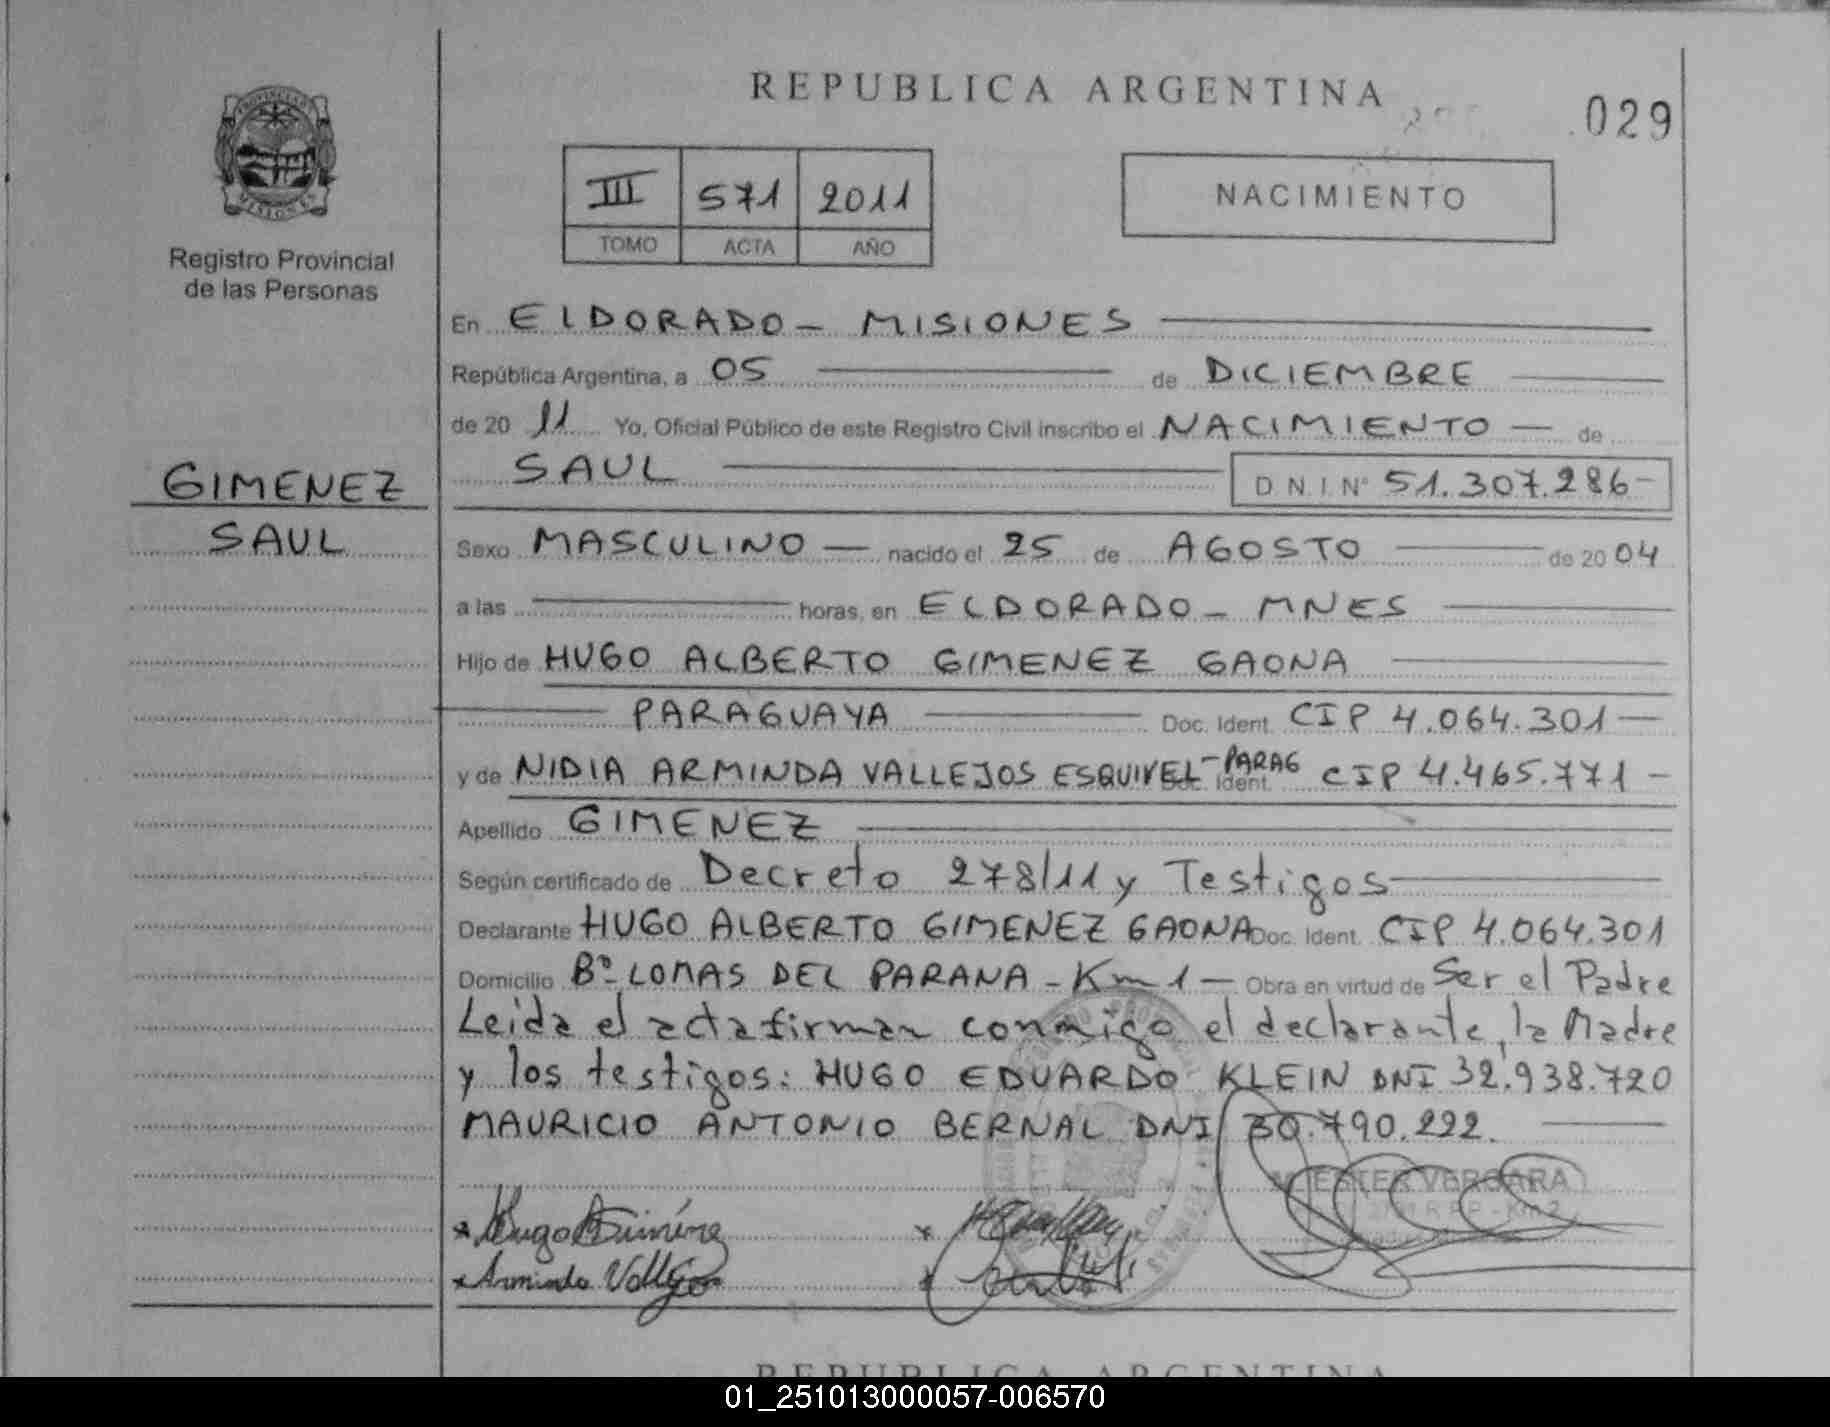 REPUBLICA ARGENTINA
029
PROVINCIA
MISIONES
Registro Provincial
de las Personas
III 571 2011
TOMO ACTA AÑO
NACIMIENTO
En ELDORADO - MISIONES
República Argentina, a 05 de DICIEMBRE
de 20 11 Yo, Oficial Público de este Registro Civil inscribo el NACIMIENTO - de
SAUL D.N.I. Nº 51.307.286-
GIMENEZ
SAUL
Sexo MASCULINO - nacido el 25 de AGOSTO de 20 04
a las horas, en ELDORADO - MNES
Hijo de HUGO ALBERTO GIMENEZ GAONA
PARAGUAYA Doc. Ident. CIP 4.064.301-
y de NIDIA ARMINDA VALLEJOS ESQUIVEL - PARAG Doc. Ident. CIP 4.465.771-
Apellido GIMENEZ
Según certificado de Decreto 278/11 y Testigos
Declarante HUGO ALBERTO GIMENEZ GAONA Doc. Ident. CIP 4.064.301
Domicilio Bº LOMAS DEL PARANA - Km 1 - Obra en virtud de Ser el Padre
Leida el acta firman conmigo el declarante, la Madre
y los testigos: HUGO EDUARDO KLEIN DNI 32.938.720
MAURICIO ANTONIO BERNAL DNI 30.790.222.
ESTER VERGARA
Hugo A Giménez
Arminda Vallejos
REPUBLICA ARGENTINA
01_251013000057-006570